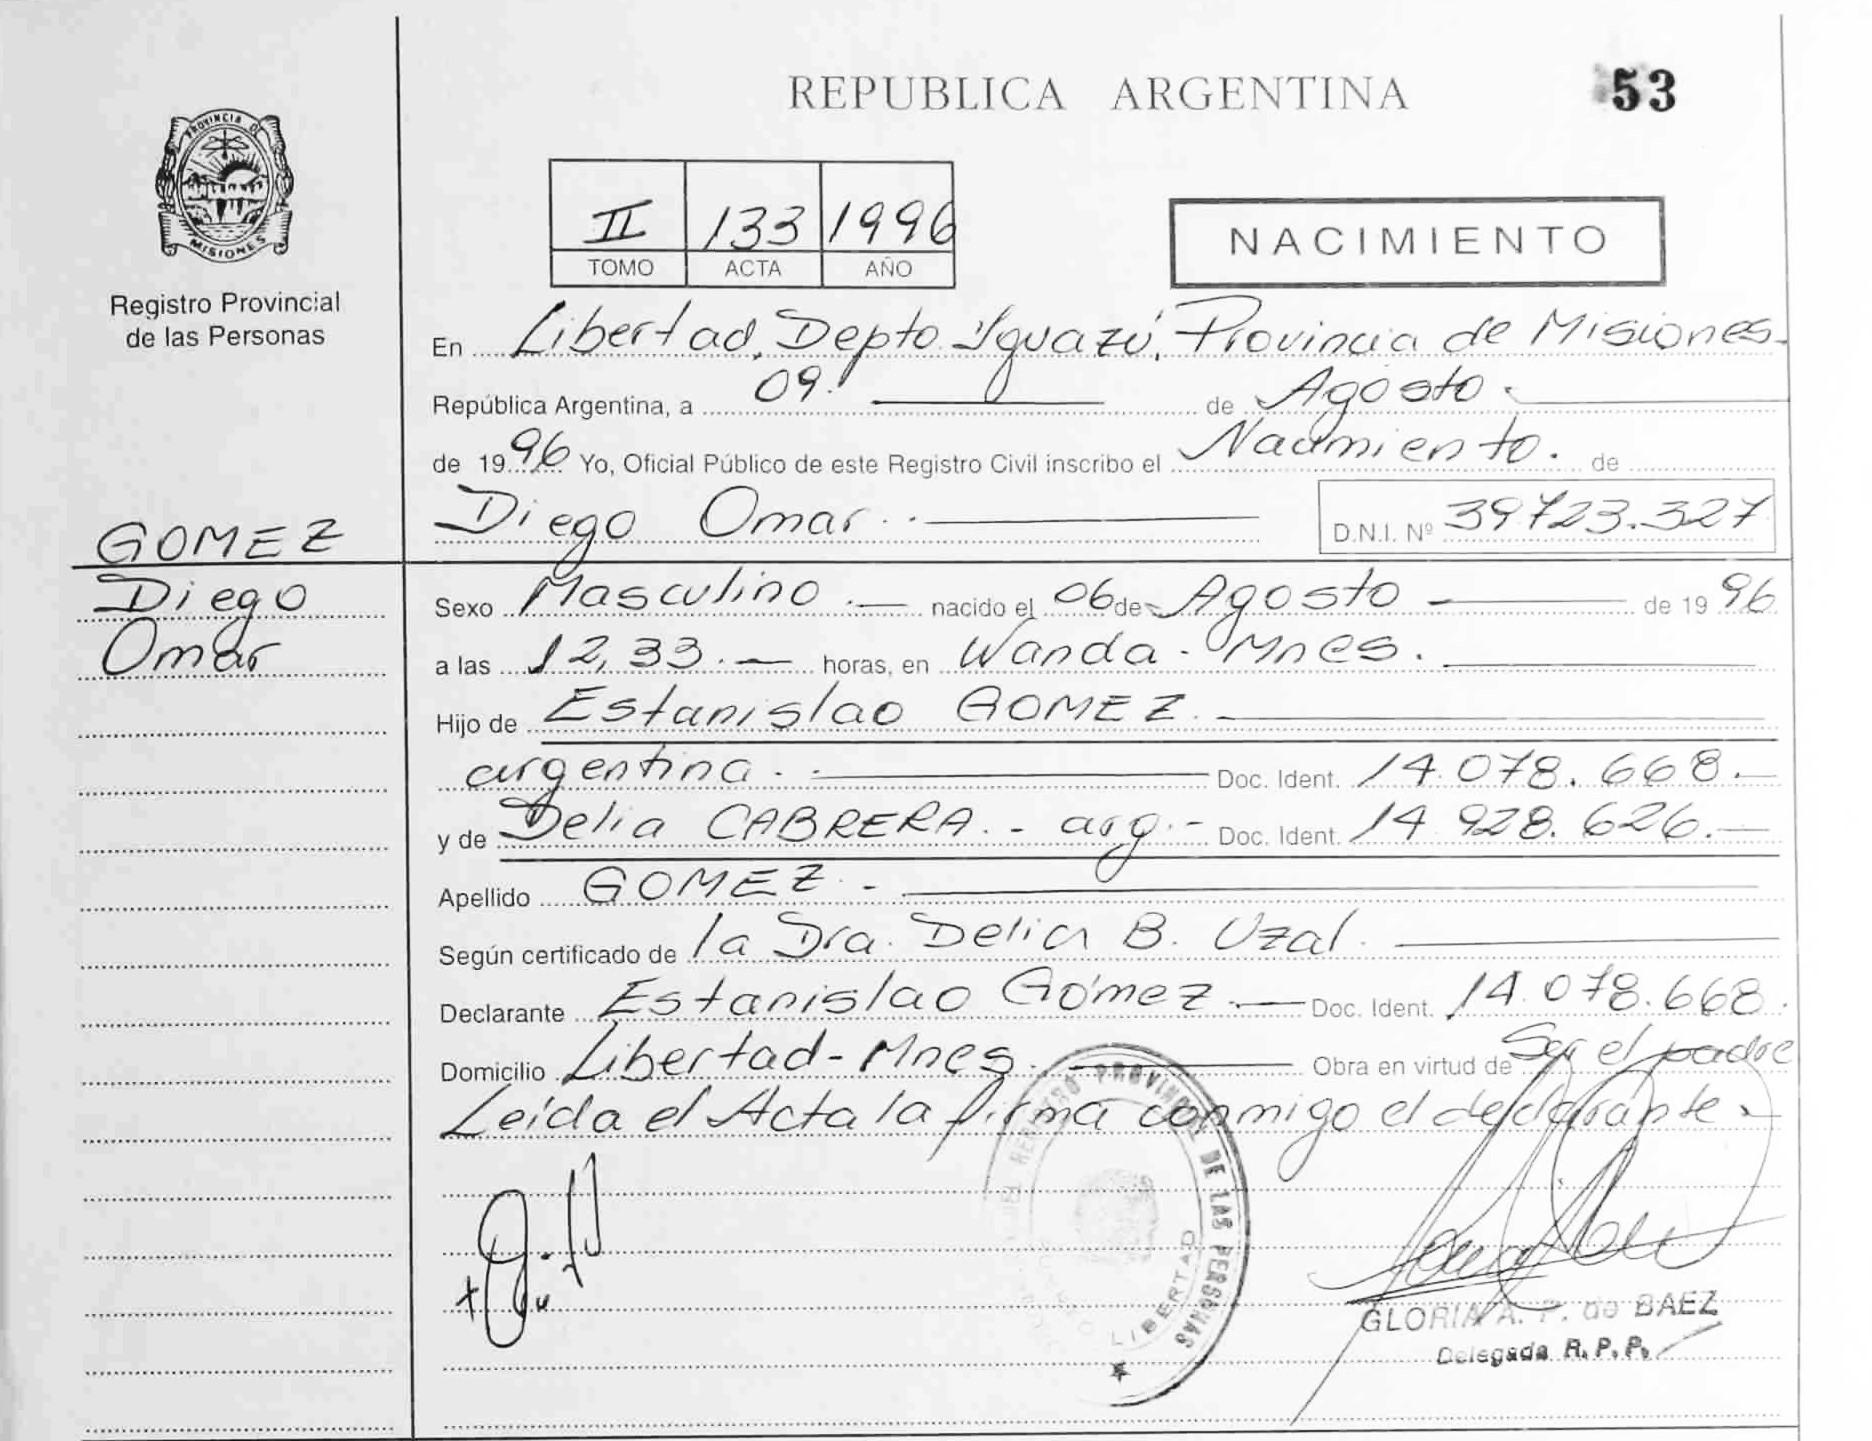 REPUBLICA ARGENTINA
53
PROVINCIA DE
MISIONES
Registro Provincial
de las Personas
II 133 1996
TOMO ACTA AÑO
NACIMIENTO
En Libertad, Depto Iguazú, Provincia de Misiones
República Argentina, a 09. de Agosto
de 1996 Yo, Oficial Público de este Registro Civil inscribo el Nacimiento. de
Diego Omar D.N.I. Nº 39723.327
GOMEZ
Diego
Omar
Sexo Masculino nacido el 06 de Agosto de 1996
a las 12,33. horas, en Wanda - Mnes.
Hijo de Estanislao GOMEZ
argentina. Doc. Ident. 14.078.668.
y de Delia CABRERA. - arg. - Doc. Ident. 14.928.626.
Apellido GOMEZ. -
Según certificado de la Dra. Delia B. Uzal.
Declarante Estanislao Gómez. Doc. Ident. 14.078.668.
Domicilio Libertad - Mnes. Obra en virtud de Ser el padre
Leída el Acta la firma conmigo el declarante
REGISTRO PROVINCIAL DE LAS PERSONAS
LIBERTAD
GLORIA A. P. de BAEZ
Delegada R. P. P.